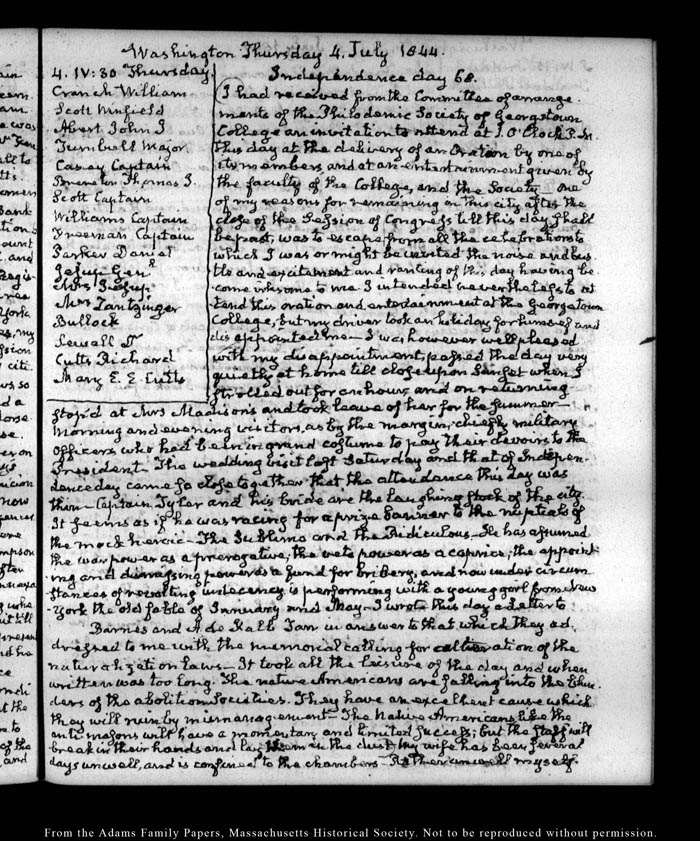 Washington Thursday 4. July 1844.
4. IV:30 Thursday
Cranch William
Scott Winfield
Abert John J
Turnbull Major
Casey Captain
Thomas J.
Scott Captain
Williams Captain
Freeman Captain
Parker Daniel
Jesup Genl
Mrs Jesup
Mrs Tantzinger
Bullock
Sewall
Cutts Richard
Mary E. E. Cutts
Independence day 68.
I had received from the Committee of arrange-
ments of the Philodemic Society of Georgetown
College an invitation to attend at 1. O'Clock P.M.
this day at the delivery of an Oration by one of
its members, and at an entertainment given by
the faculty of the College, and the Society. One
of my reasons for remaining in this city after the
close of the Session of Congress till this day shall
be past, was to escape from all the celebrations to
which I was or might be invited the noise and bus-
tle and excitement and ranting of this day having be-
come irksome to me. I intended nevertheless to at-
tend this oration and entertainment at the Georgetown
College, but my driver took an holiday for himself and
disappointed me— I was however well pleased
with my disappointment, passed the day very
quietly at home till close upon Sunset when I
strolled out for an hour, and on returning
stop'd at Mrs Madison's and took leave of her for the Summer—
Morning and evening visitors, as by the margin, chiefly military
officers who had been in grand costume to pay their devours to the
President— The wedding visit last Saturday and that of Indepen-
dence day came so close together that the attendance this day was
thin— Captain Tyler and his bride are the laughing stock of the city.
It seems as if he was racing for a prize banner to the nuptials of
the mock heroic— The Sublime and the Ridiculous— He has assumed
the war power as a prerogative, the veto power as a caprice, the appoint-
ing and dismissing power as a fund for bribery, and now under circum-
stances of revolting indecency is performing with a young girl from New
-York the old fable of January and May— I wrote this day a Letter to
Barnes and A de Kalb Tarr in answer to that which they ad-
dressed to me with the memorial calling for alteration of the
naturalization laws— It took all the leisure of the day and when
written was too long. The native Americans are falling into the blun-
ders of the abolition societies. They have an excellent cause which
they will ruin by mismanagement— The Native Americans like the
antimasons will have a momentary and limited success; but the staff will
break in their hands and lay them in the dust. My wife has been several
days unwell, and is confined to the chambers— Rather unwell myself.
From the Adams Family Papers, Massachusetts Historical Society. Not to be reproduced without permission.